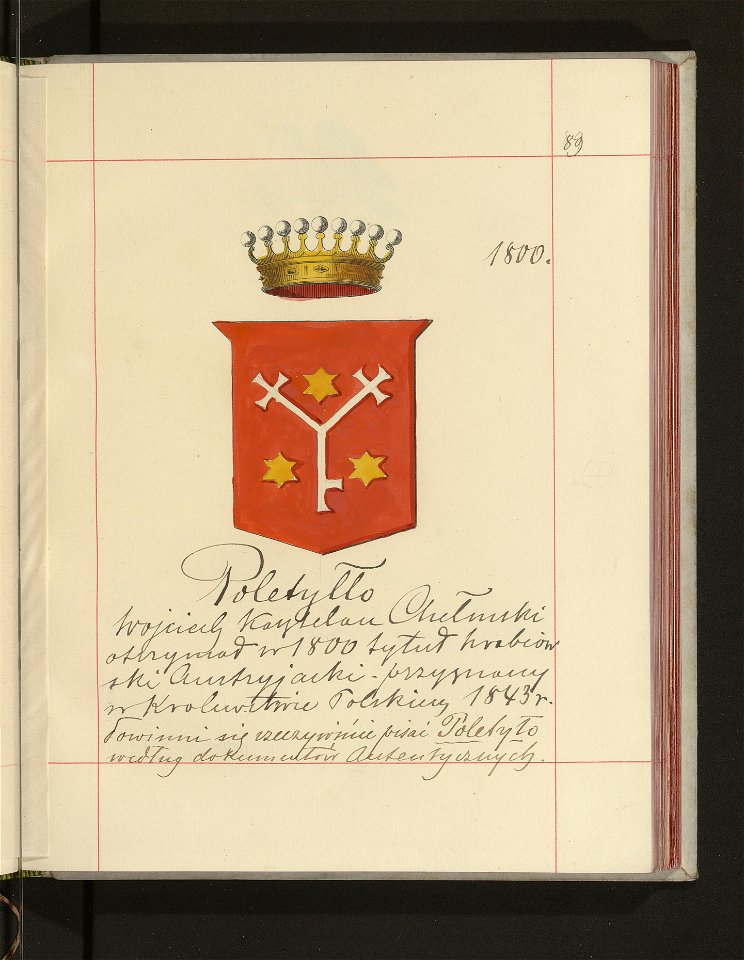 89
1800.
Poletyłło
Wojciech Kasztelan Chełmski
otrzymał w 1800 tytuł hrabiow
ski Austryjacki - przyznany
w Krolewstwie Polskim 1843 r.
Powinni się rzeczywiście pisać Poletyło
według dokumentów Autentycznych.